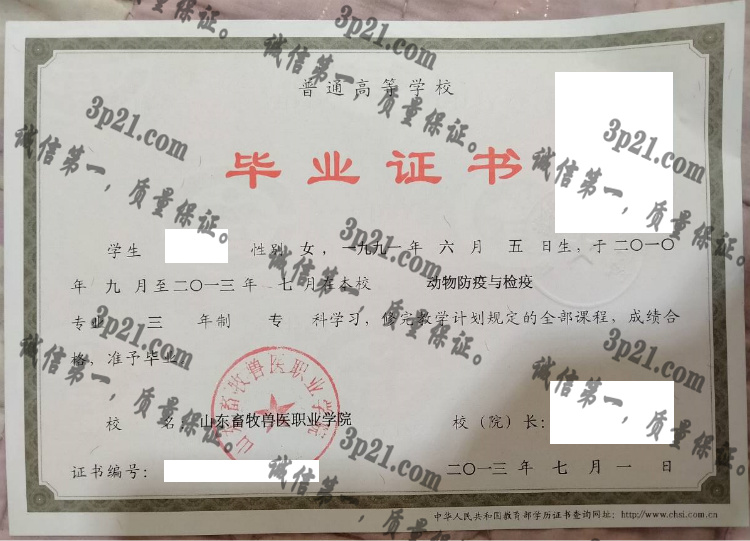 普通高等学校
毕业证书
学生 性别 女，一九九一年 六 月 五 日生，于二〇一〇
年 九 月至二〇一三年 七 月在本校 动物防疫与检疫
专业 三 年制 专 科学习，修完教学计划规定的全部课程，成绩合
格，准予毕业。
山东畜牧兽医职业学院
校 名：山东畜牧兽医职业学院 校（院）长：
证书编号： 二〇一三 年 七 月 一 日
中华人民共和国教育部学历证书查询网址：http://www.chsi.com.cn
3p21.com
诚信第一，质量保证。
3p21.com
诚信第一，质量保证。
3p21.com
诚信第一，质量保证。
3p21.com
诚信第一，质量保证。
3p21.com
诚信第一，质量保证。
3p21.com
诚信第一，质量保证。
3p21.com
诚信第一，质量保证。
诚信第一，质量保证。